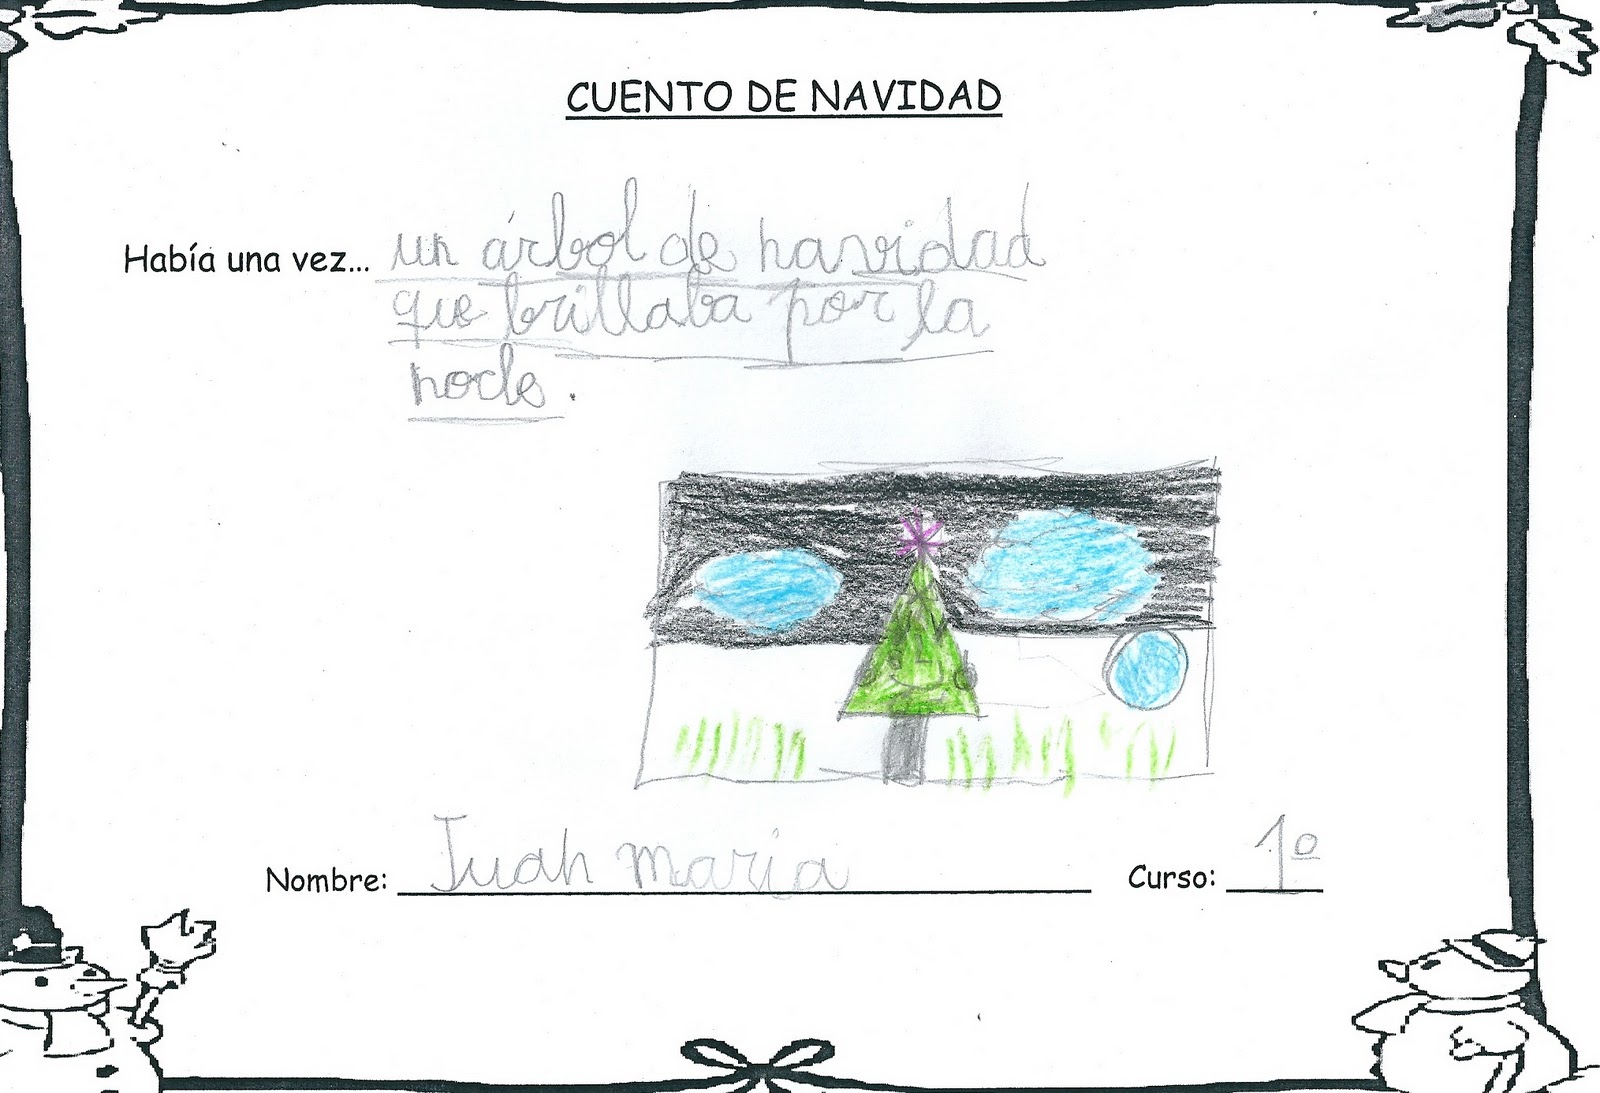 CUENTO DE NAVIDAD
Había una vez... un árbol de navidad
que brillaba por la
noche .
Nombre: Juan maria Curso: 1º